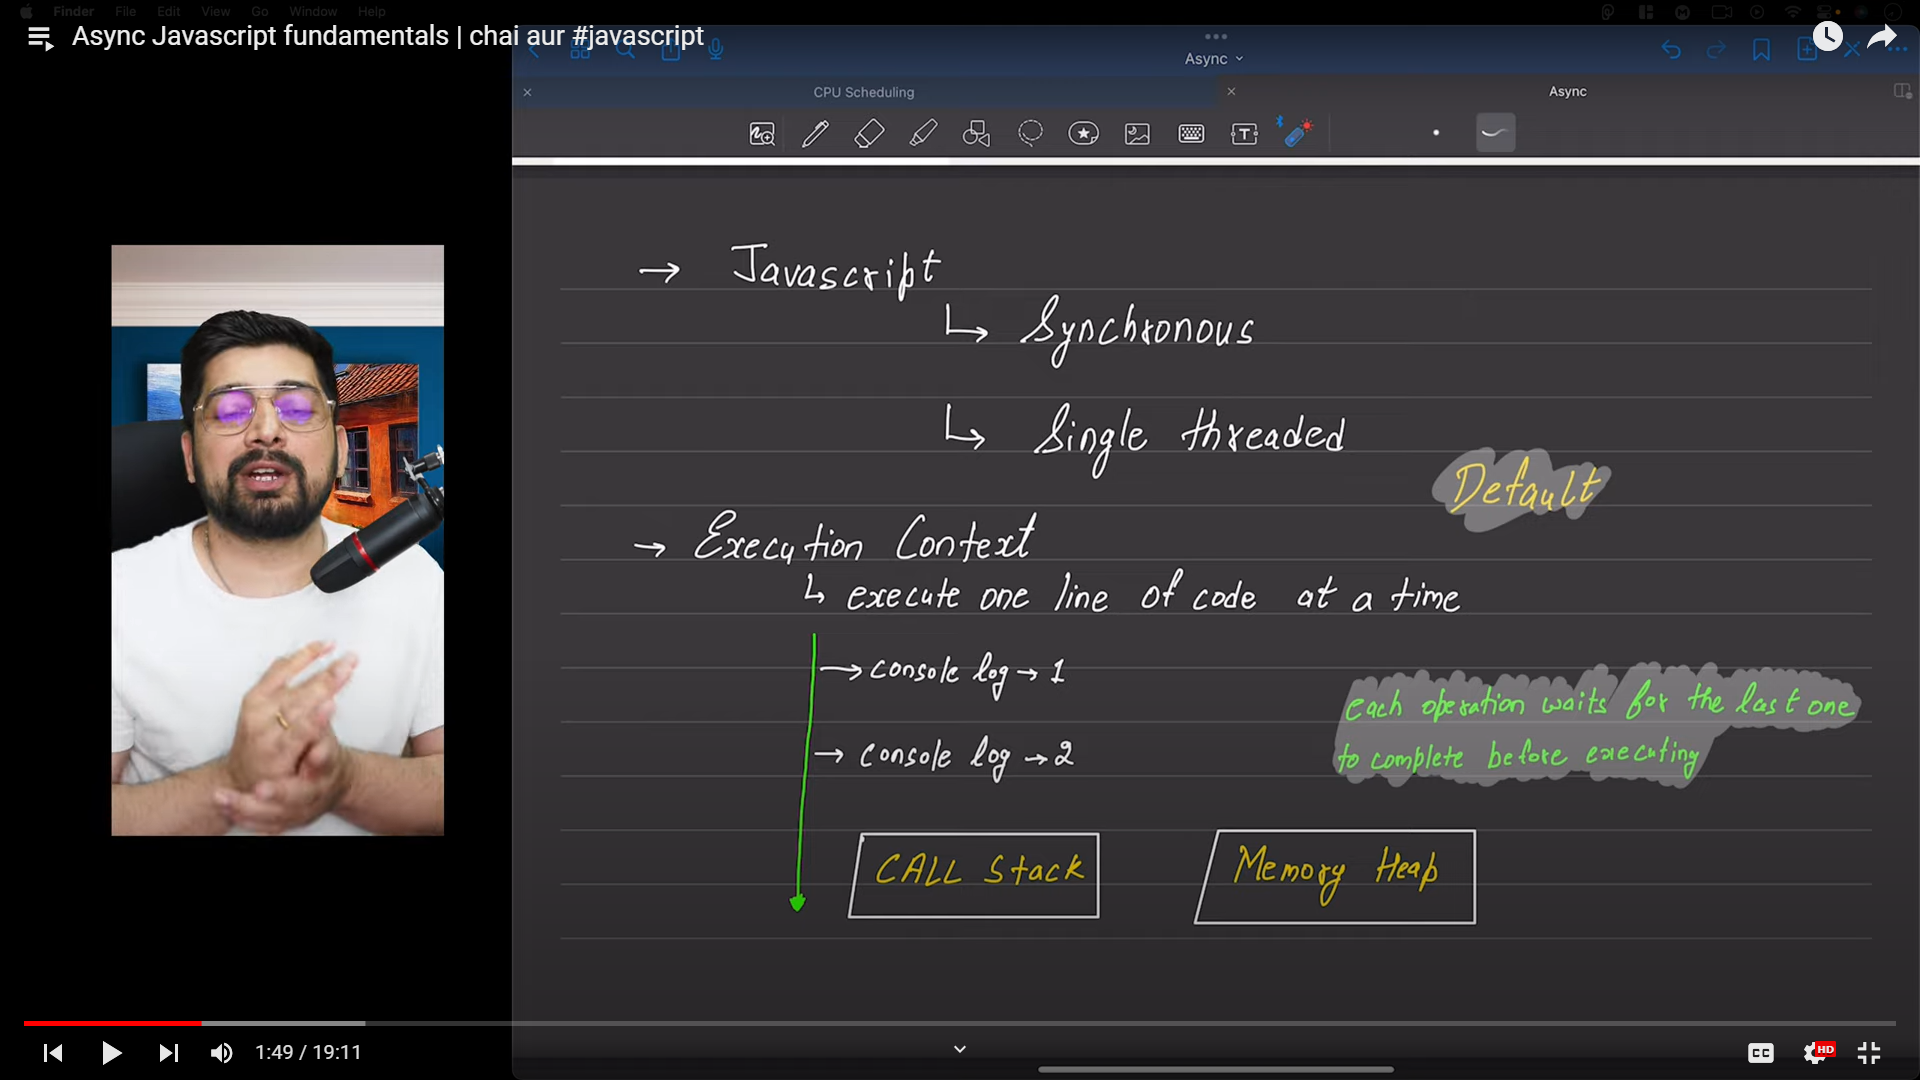 Finder File Edit View Go Window Help
Async Javascript fundamentals | chai aur #javascript
Async
CPU Scheduling
Async
T
→ Javascript
↳ Synchronous
↳ Single threaded
Default
→ Execution Context
↳ execute one line of code at a time
→ console log → 1
→ console log → 2
each operation waits for the last one
to complete before executing
CALL Stack
Memory Heap
1:49 / 19:11
CC
HD